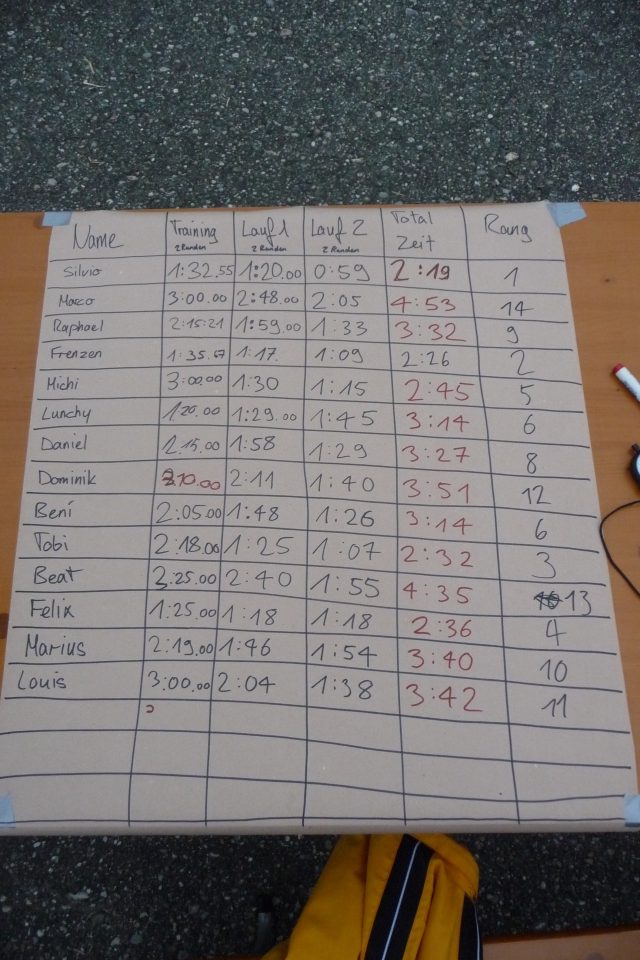 Name Training 2 Runden Lauf 1 2 Runden Lauf 2 2 Runden Total Zeit Rang
Silvio 1:32.55 1:20.00 0:59 2:19 1
Marco 3:00.00 2:48.00 2:05 4:53 14
Raphael 2:15:21 1:59.00 1:33 3:32 9
Frenzen 1:35.67 1:17. 1:09 2:26 2
Michi 3:00.00 1:30 1:15 2:45 5
Lunchy 1:20.00 1:29.00 1:45 3:14 6
Daniel 2.15.00 1:58 1:29 3:27 8
Dominik 3.10.00 2:11 1:40 3:51 12
Beni 2:05.00 1:48 1:26 3:14 6
Tobi 2:18.00 1:25 1:07 2:32 3
Beat 3.25.00 2:40 1:55 4:35 13
Felix 1:25.00 1:18 1:18 2:36 4
Marius 2:19.00 1:46 1:54 3:40 10
Louis 3:00.00 2:04 1:38 3:42 11